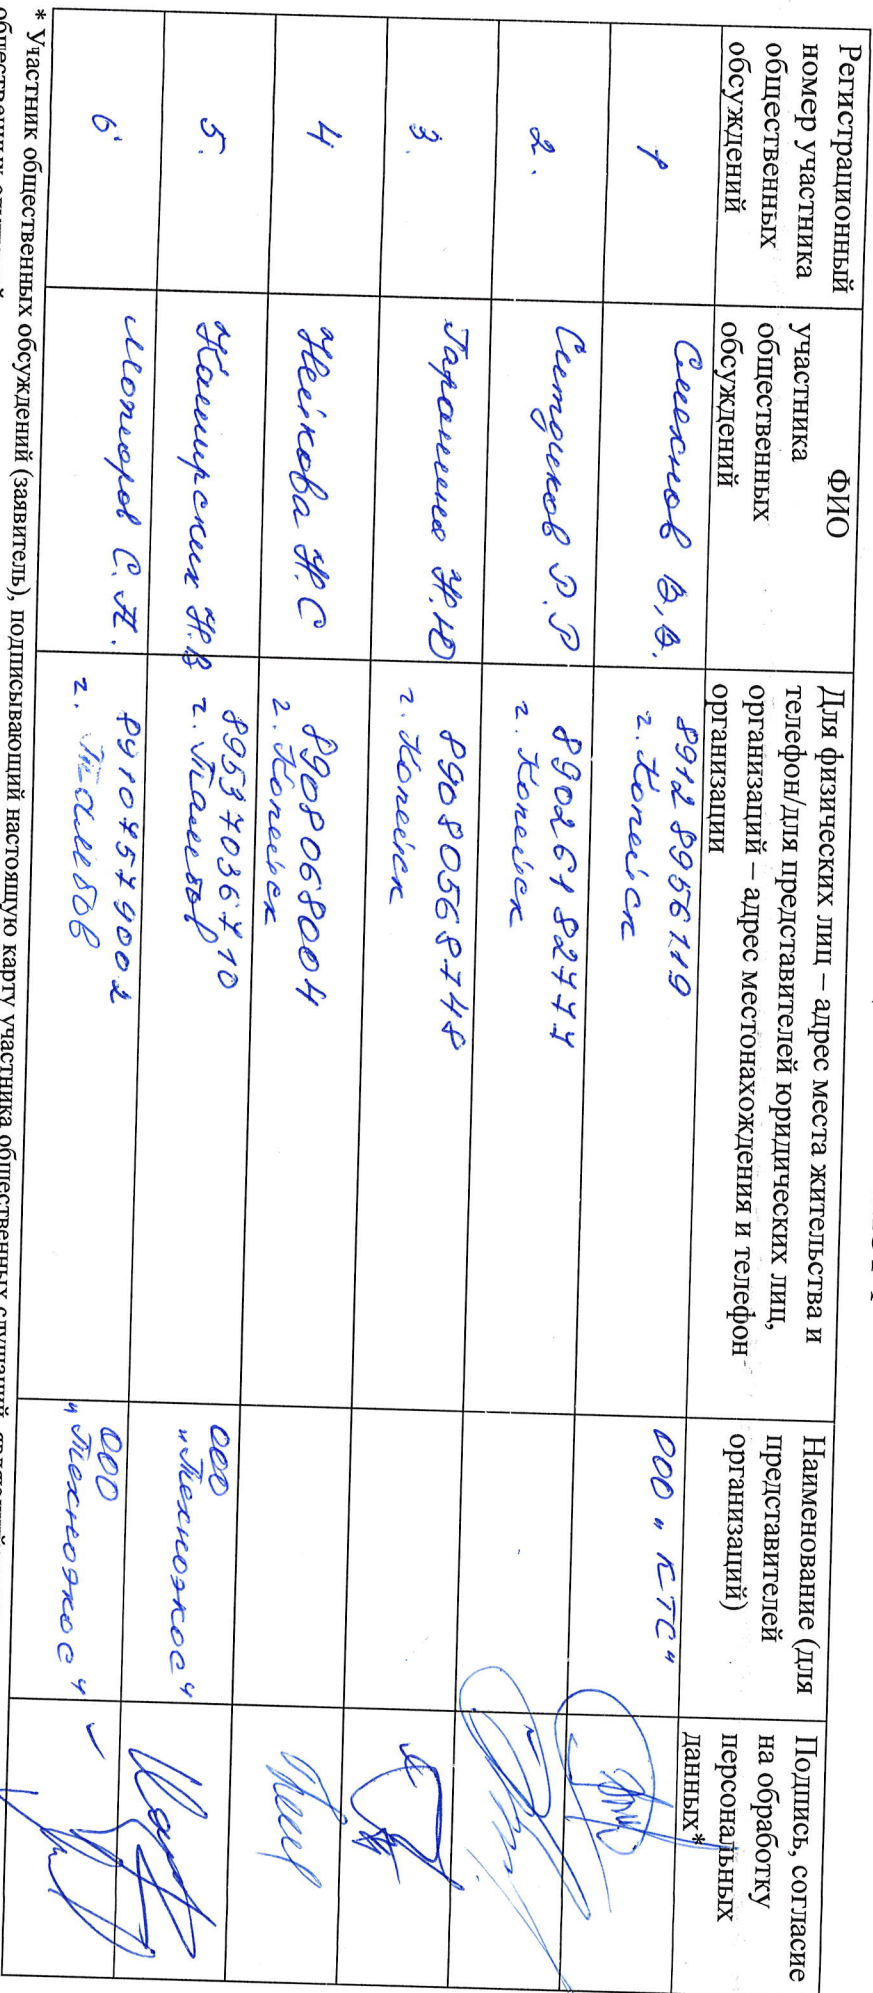 Регистрационный номер участника общественных обсуждений
ФИО участника общественных обсуждений
Для физических лиц – адрес места жительства и телефон/для представителей юридических лиц, организаций – адрес местонахождения и телефон организации
Наименование (для представителей организаций)
Подпись, согласие на обработку персональных данных*
1
Смехнов В.В.
8912 8956119
г. Копейск
ООО "КТС"
2.
Ситдиков Р.Р
г. Копейск
3.
Гаранина Н.Ю
г. Копейск
4
Нейкова Н.С
8908068004
г. Копейск
5.
Каширских Н.В
89537036710
г. Тамбов
ООО
"Техноэкос"
6
С.Н.
г. Тамбов
ООО
"Техноэкос"
* Участник общественных обсуждений (заявитель), подписывающий настоящую карту участника общественных слушаний